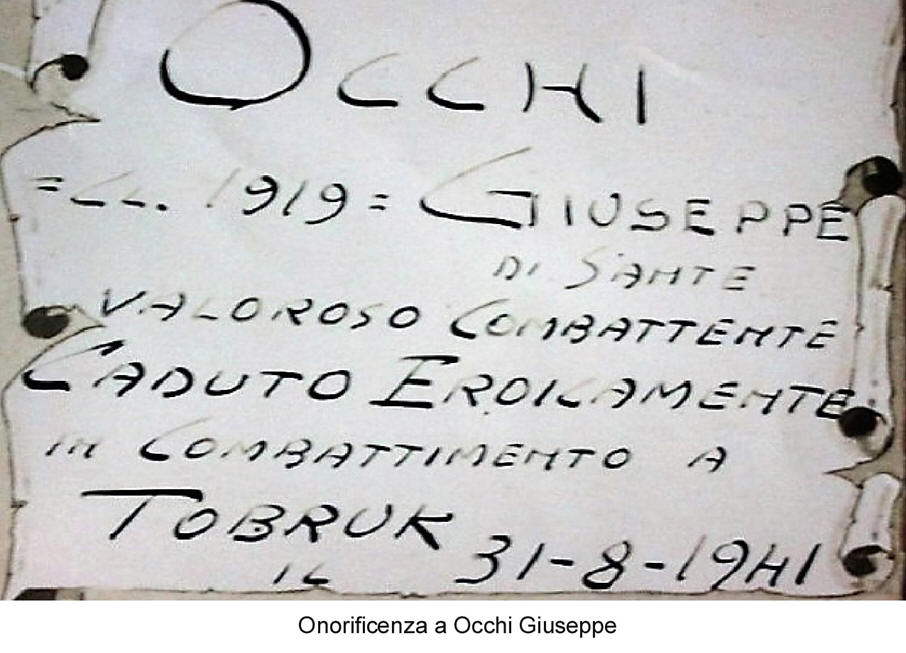 OCCHI
=CL. 1919= GIUSEPPE
DI SANTE
VALOROSO COMBATTENTE
CADUTO EROICAMENTE
IN COMBATTIMENTO A
TOBRUK
IL 31-8-1941
Onorificenza a Occhi Giuseppe